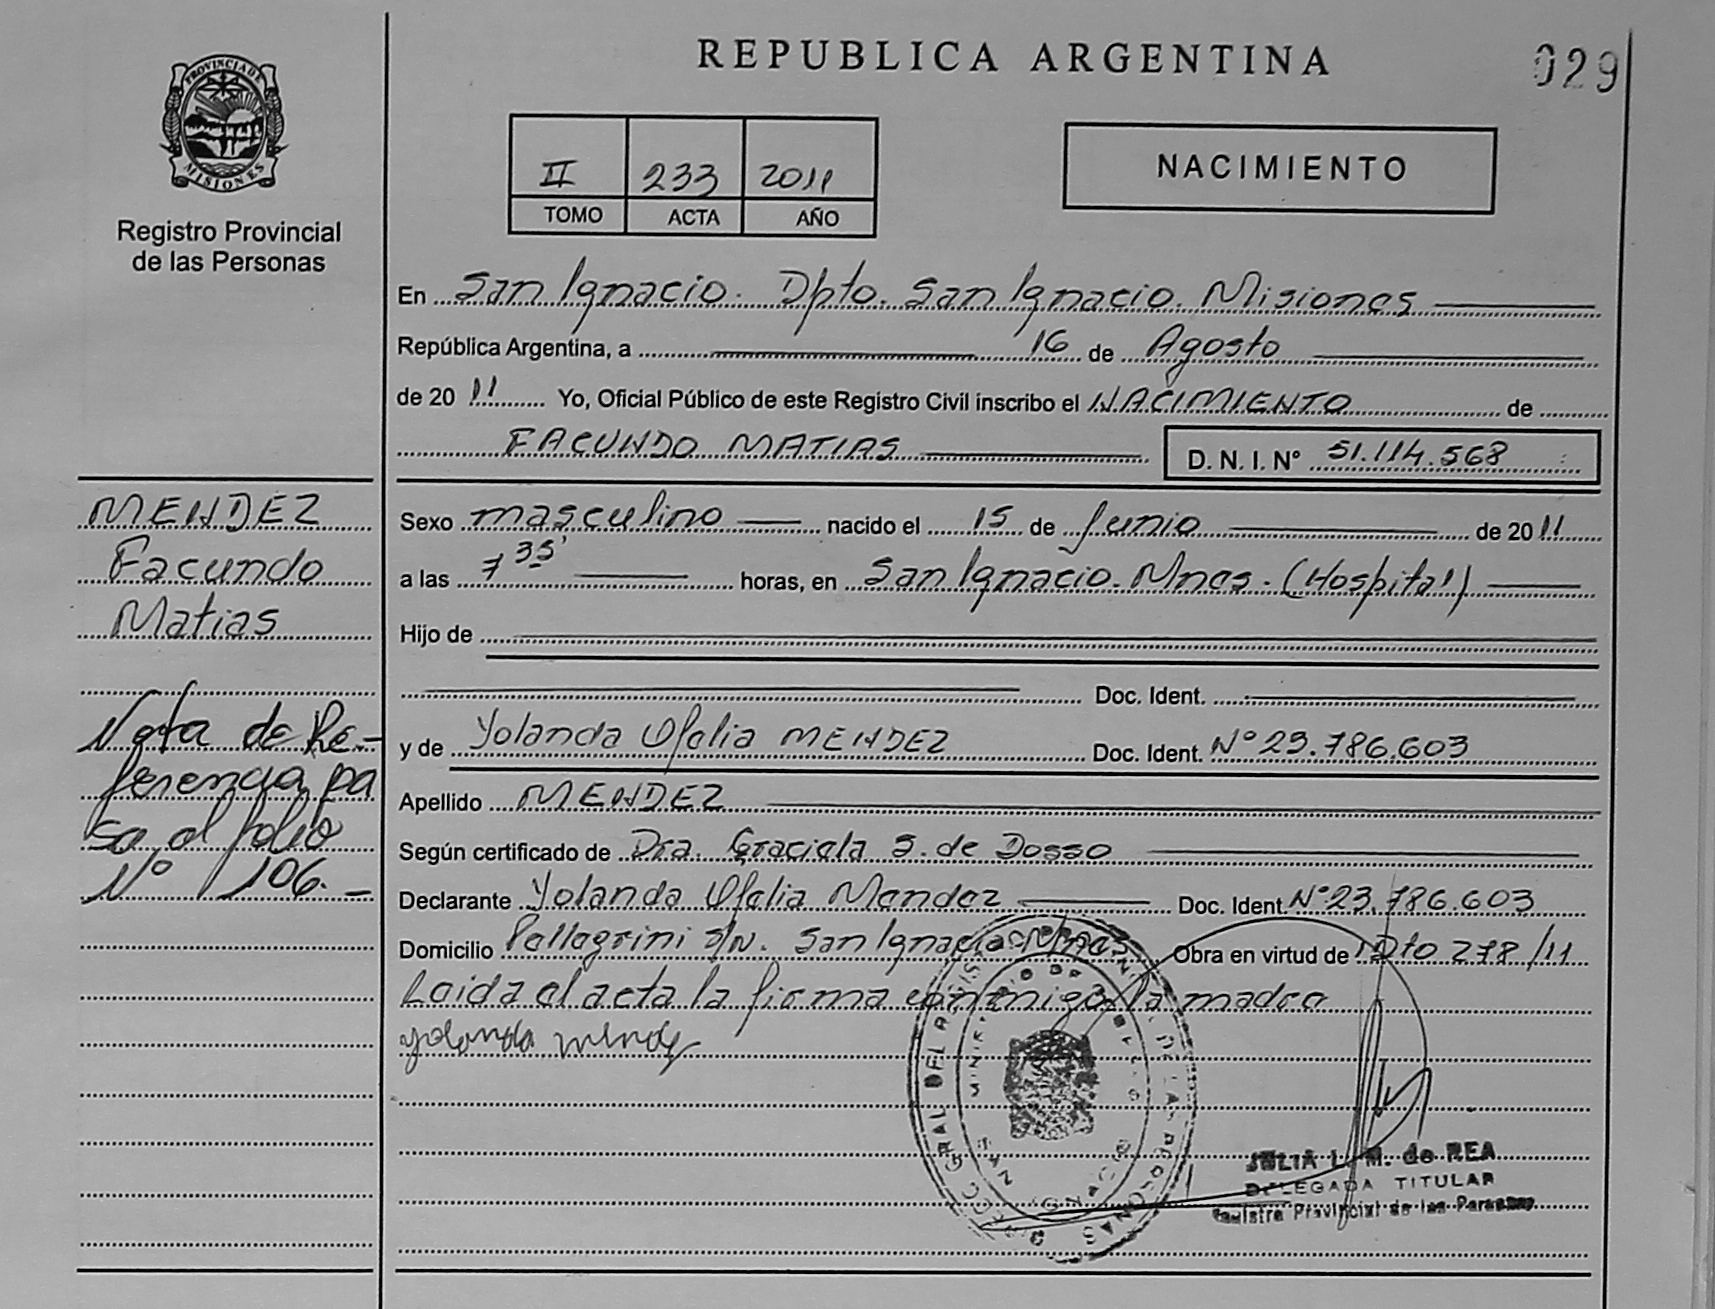 REPUBLICA ARGENTINA
029
PROVINCIA DE
MISIONES
Registro Provincial
de las Personas
II 233 2011
TOMO ACTA AÑO
NACIMIENTO
En San Ignacio. Dpto. San Ignacio. Misiones
República Argentina, a 16 de Agosto
de 20 11 Yo, Oficial Público de este Registro Civil inscribo el NACIMIENTO de
FACUNDO MATIAS D. N. I. Nº 51.114.568
MENDEZ
Facundo
Matias
Nota de Re-
ferencia pa
sa al folio
Nº 106.-
Sexo masculino nacido el 15 de Junio de 20 11
a las 7 35' horas, en San Ignacio. Mnes. (Hospital)
Hijo de
Doc. Ident.
y de Yolanda Ofelia MENDEZ Doc. Ident. Nº 23.786.603
Apellido MENDEZ
Según certificado de Dra. Graciela S. de Dosso
Declarante Yolanda Ofelia Mendez Doc. Ident. Nº 23.786.603
Domicilio Pellegrini s/N. San Ignacio Mnes Obra en virtud de Dto 278/11
Leida el acta la firma conmigo la madre
yolanda mendez
JULIA I. M. de REA
DELEGADA TITULAR
Registro Provincial de las Personas